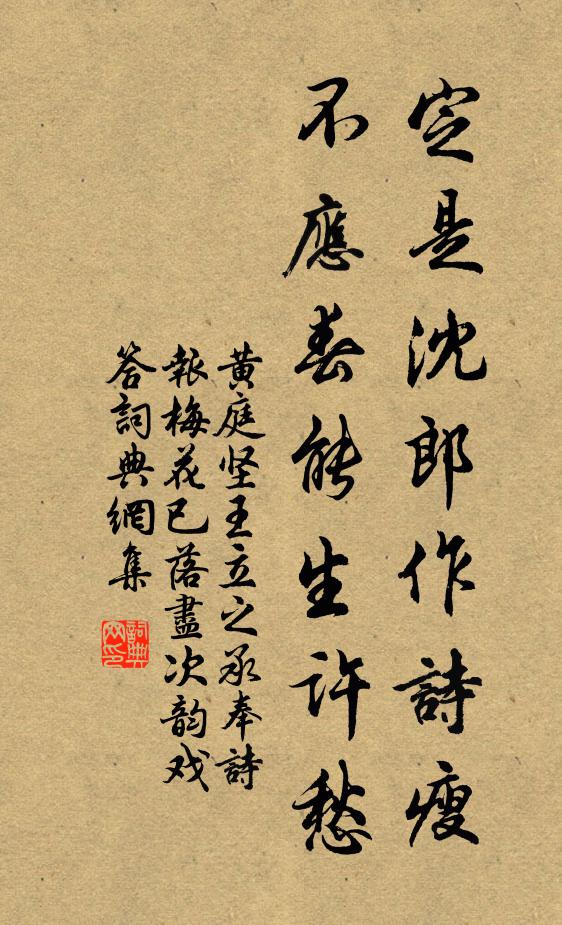 定是沈郎作詩瘦
不應春能生許愁
黄庭坚王立之承奉詩
報梅花已落盡次韵戏
答詞典網集
詞典
网印